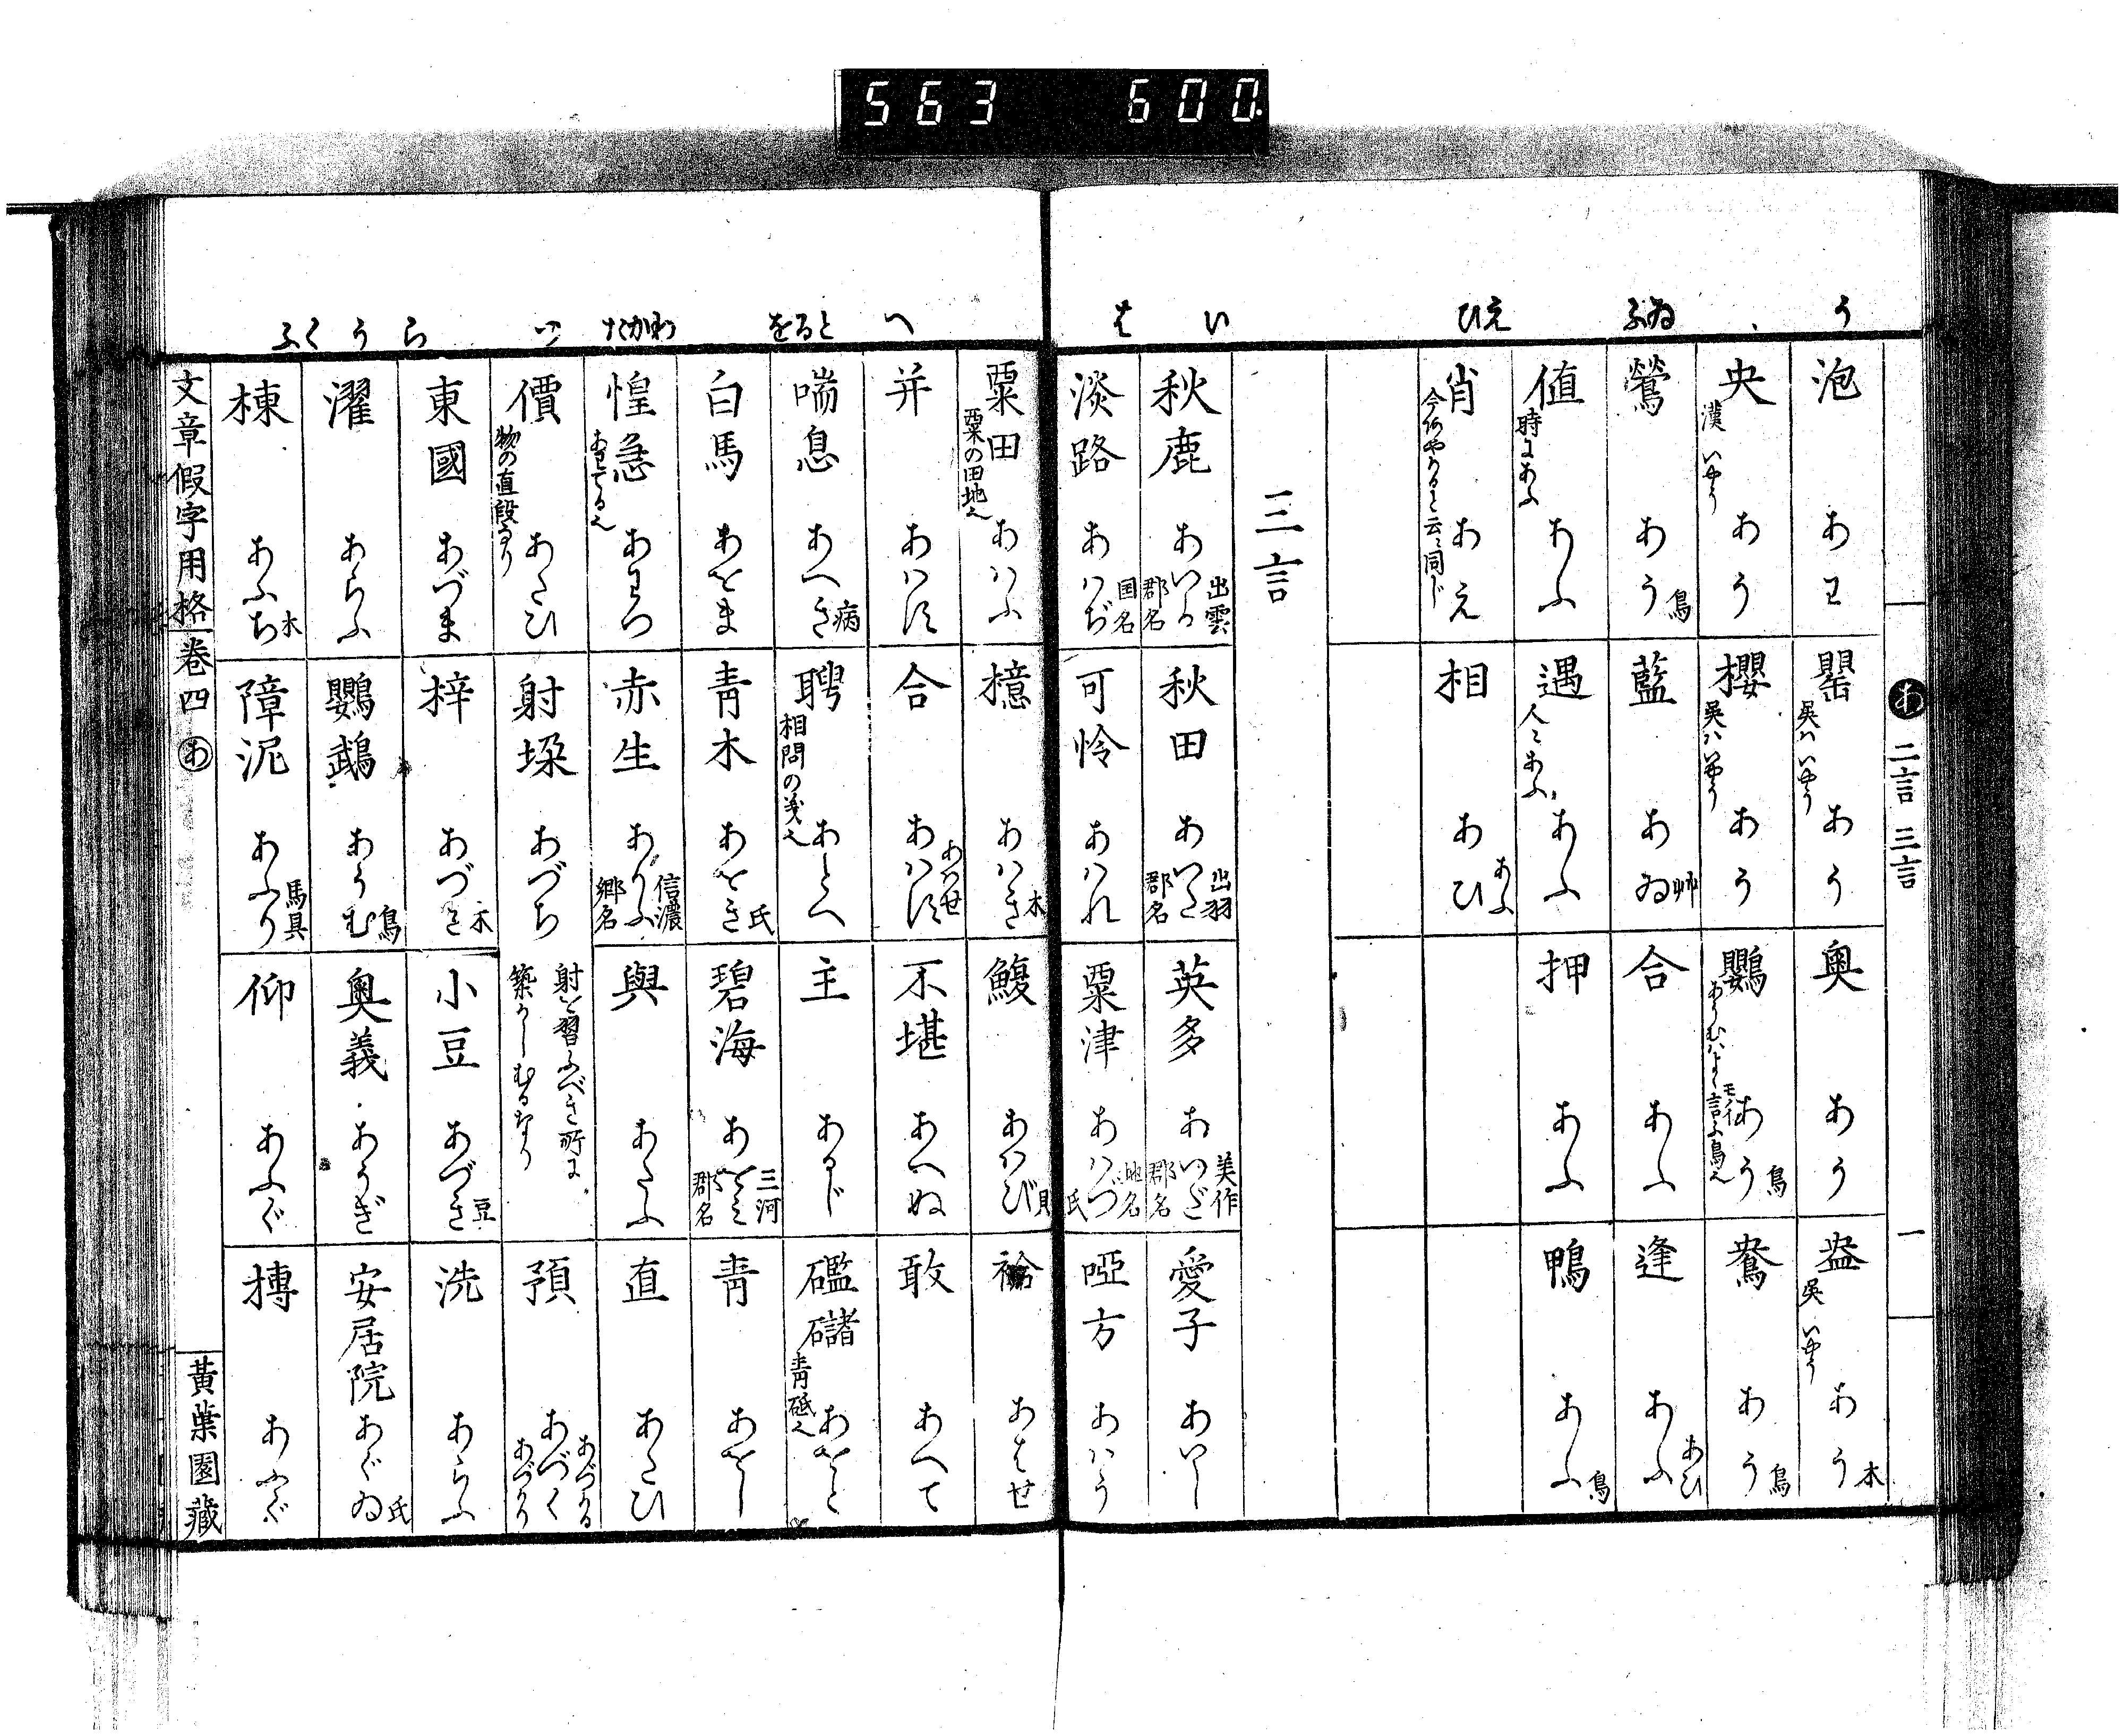 563 600.
う
ふゐ
ひえ
い
は
へ
をるとへ
わかた
つ
らうくふ
あ 二言 三言 一
泡 あわ
罌 呉ハいやう あう
奥 あう
盎 呉いやう あう 木
央 漢いやう あう
櫻 呉ハいやう あう
鸚 あうむハよく言ふ鳥也 あう 鳥
鴦 あう 鳥
鶯 あう 鳥
藍 あゐ 艸
合 あふ
逢 あふ あひ
値 時にあふ あふ
遇 人にあふ あふ
押 あふ
鴨 あふ 鳥
肖 あえ
相 あひ あふ
三言
秋鹿 あいか 出雲郡名
秋田 あいた 出羽郡名
英多 あいだ 美作郡名
愛子 あいし
淡路 あハぢ 国名
可怜 あハれ
粟津 あハづ 地名 氏
啞方 あハう
粟田 粟の田地也 あハふ
檍 あハき 木
鰒 あハび 貝
袷 あはせ
并 あハす
合 あハす あハせ
不堪 あへぬ
敢 あへて
喘息 あへき 病
聘 相問の義也 あとへ
主 あるじ
礛䃴 青砥也 あをと
白馬 あをま
青木 あをき 氏
碧海 あをみ 三河郡名
青 あをし
惶急 あわてる也 あわつ
赤生 あかふ 信濃郷名
與 あたふ
直 あたひ
價 物の直段なり あたひ
射垜 あづち 射を習ふべき所に築かしむるなり
預 あづく あづかる あづかり
東國 あづま
梓 あづさ 木
小豆 あづき 豆
洗 あらふ
濯 あらふ
鸚鵡 あうむ 鳥
奥義 あうぎ
安居院 あぐゐ 氏
楝 あふち 木
障泥 あふり 馬具
仰 あふぐ
摶 あふぐ
文章假字用格 卷四 あ
黃葉園藏